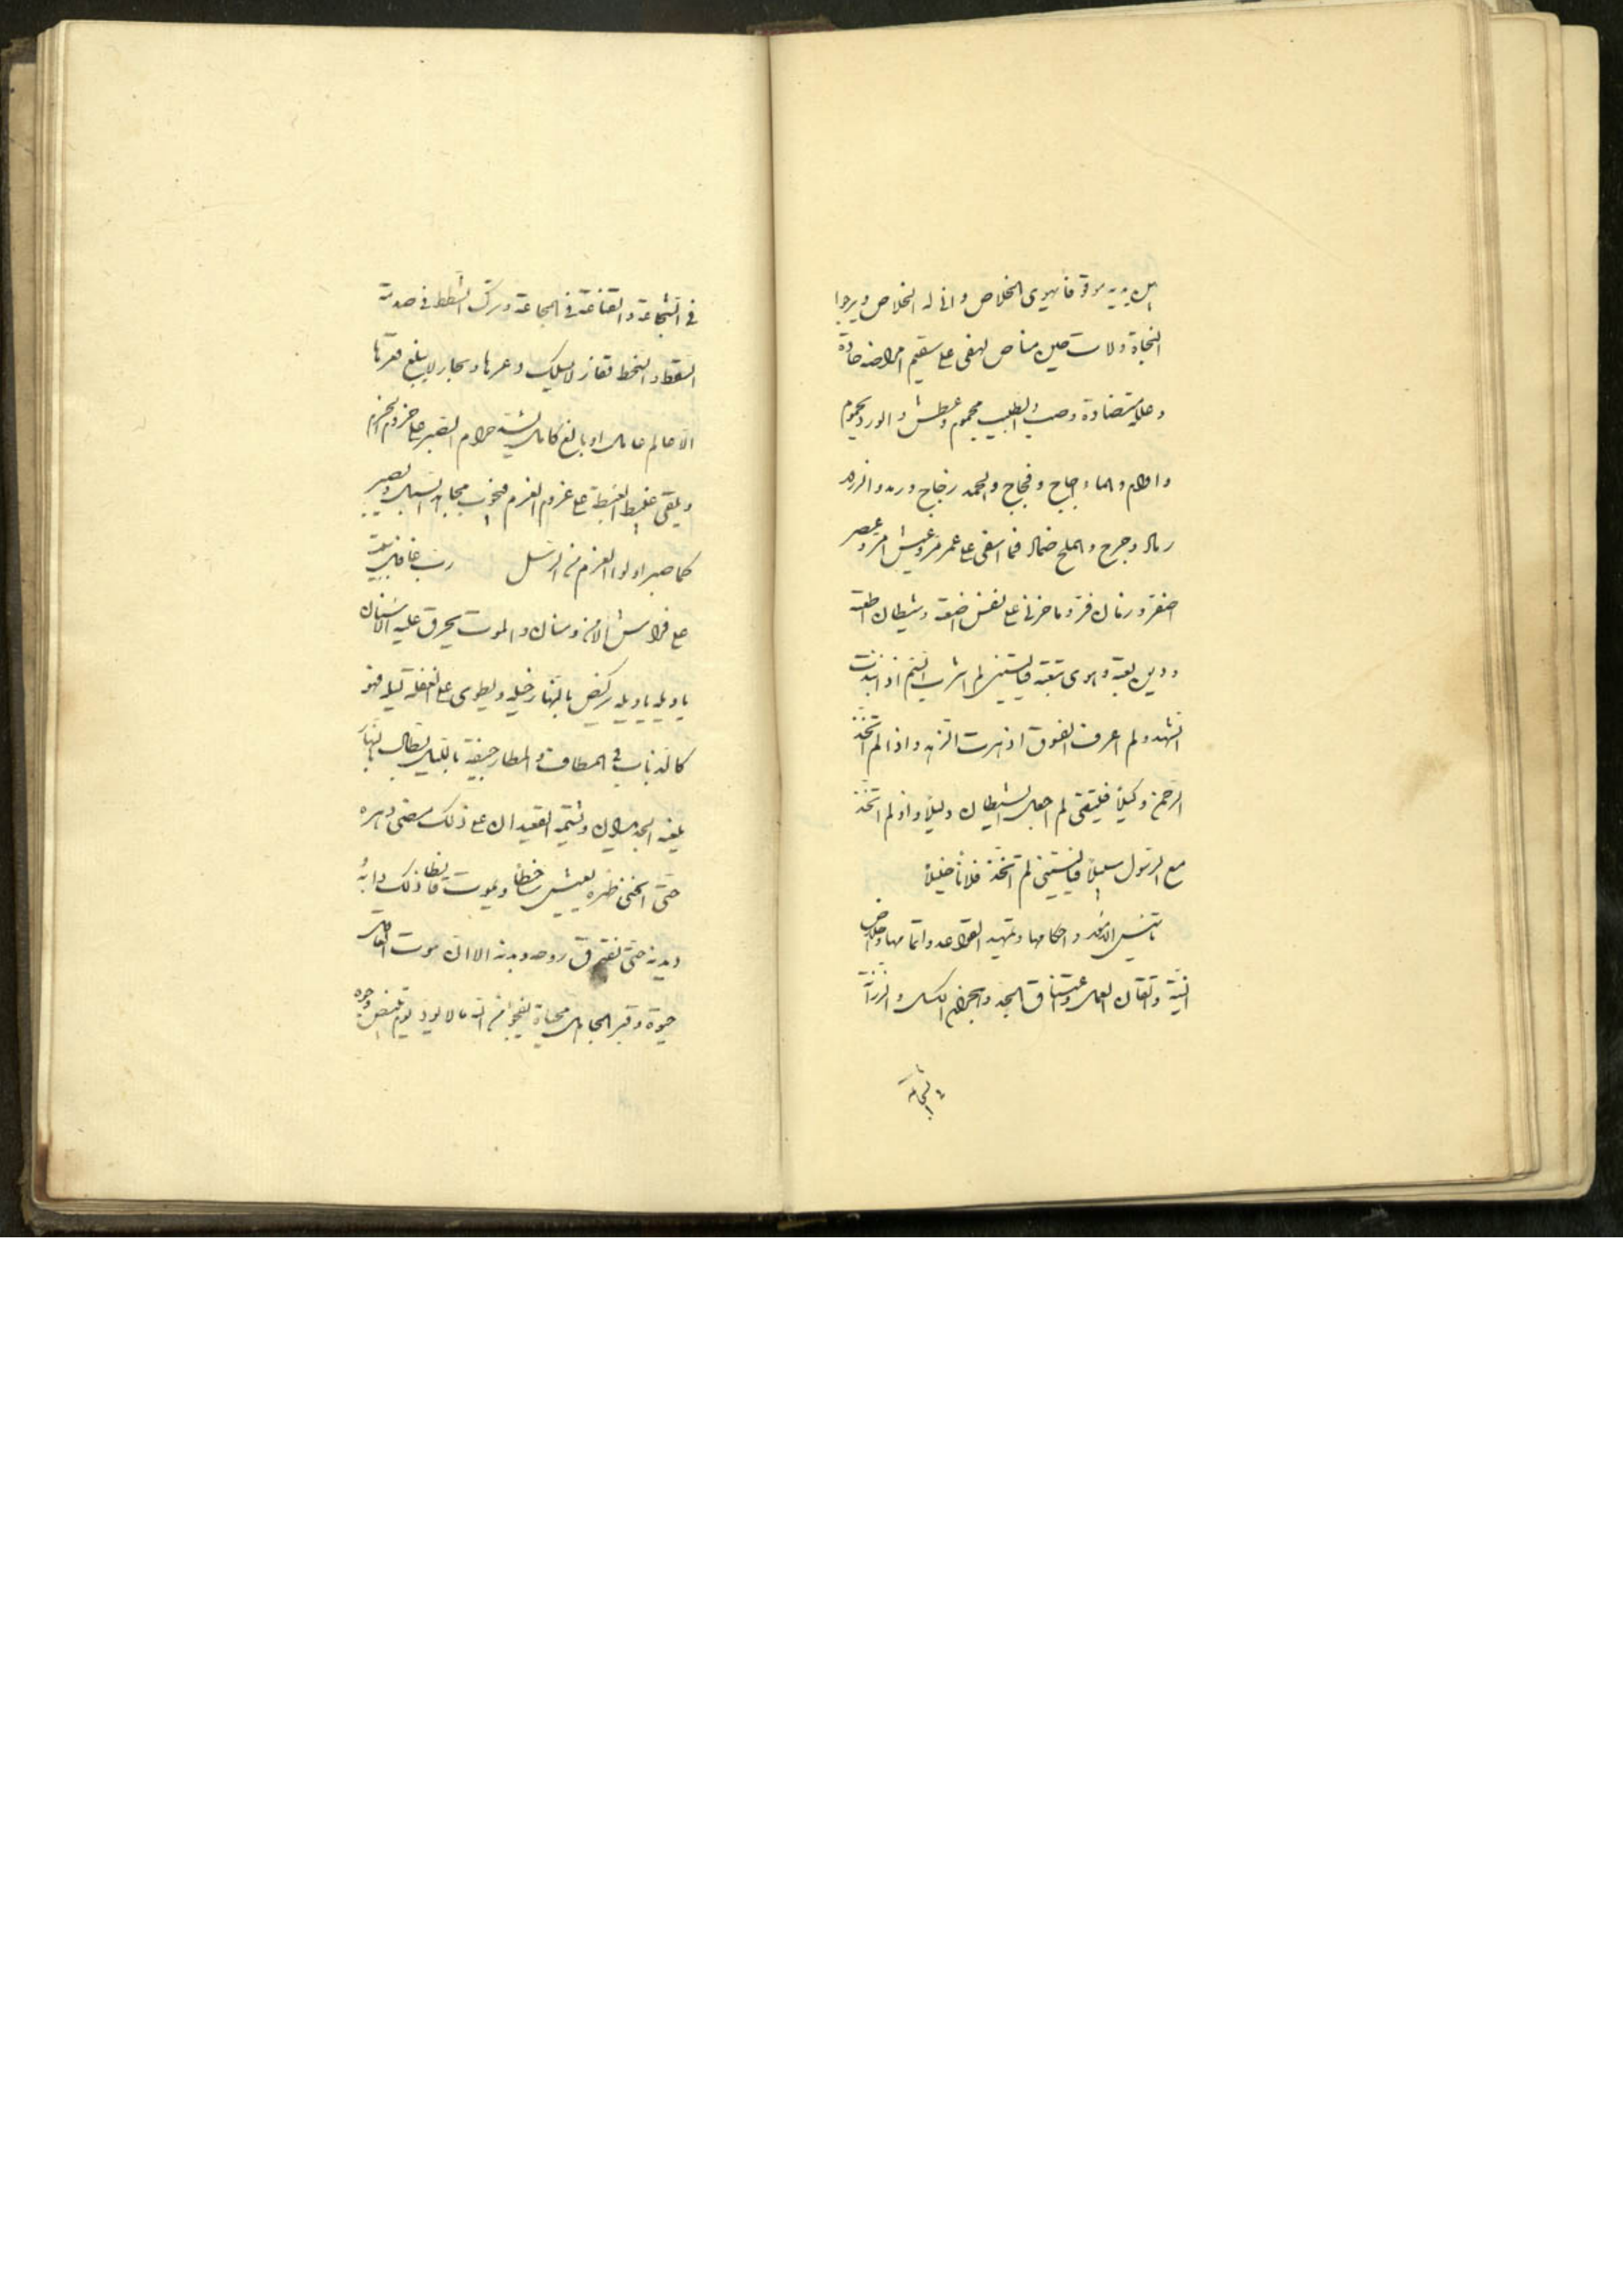 بين يديه موقوفا يهوى الخلاص وانى له الخلاص ويرجوا
النجاة ولات حين مناص لهفى على سقيم امراضه حادة
وعلله متضادة وصب والطبيب محموم وعطش والورد يحموم
واوام والماء اجاج وفجاج والجمد زجاج ورمد والزرور
رمال وجرح والملح ضماد فما اسفى على عمر مر وعيش امر وعصر
اصفر وزمان فر وما حزنى على نفس اضعته وشيطان اطعته
ودين بعته وهوى تبعته فياليتنى لم اشرب السم اذ انتبذت
الشهد ولم اعرف الفسوق اذ نبذت الزهد واذا لم اتخذ
الرحمن وكيلا فليتنى لم اجعل الشيطان دليلا واذ لم اتخذ
مع الرسول سبيلا فياليتنى لم اتخذ فلانا خليلا
تاسيس العقد واحكامها وتمهيد القواعد واتمامها واخلاص
النية واتقان العمل وعتناق الجد وهجران الكسل والرزانة
فى الشجاعة والقناعة فى المجاعة وترك الشطط فى صدمة
السقط والسخط مفاز لا يسلك وعرها وبحار لا يبلغ قعرها
الا عالم عامل او بالغ كامل يشد حزام الصبر على حيزوم الحزم
ويلقى غبيط الغبطة على عزوم العزم فيجوب مجاهل السبل ويصبر
كما صبر اولوا العزم من الرسل رب غافل يبيت
على فراش الامن وسنان والموت يحرق عليه الاسنان
يا ويله يا ويله يركض بالنهار خيله ويطوى على الغفلة ليله فهو
كالذباب فى المطاف والمطار جيفة بالليل بطال بالنهار
يلعنه الجديدان ويشتمه القعيدان على ذلك مضى دهره
حتى انحنى ظهره يعيش ساخطا ويموت قانطا ذلك دابه
وديدنه حتى تفترق روحه وبدنه الا ان موت العاقل
حيوة وقبر الجاهل محياه ليجوا من الله مالا يوم تبيض وجوه